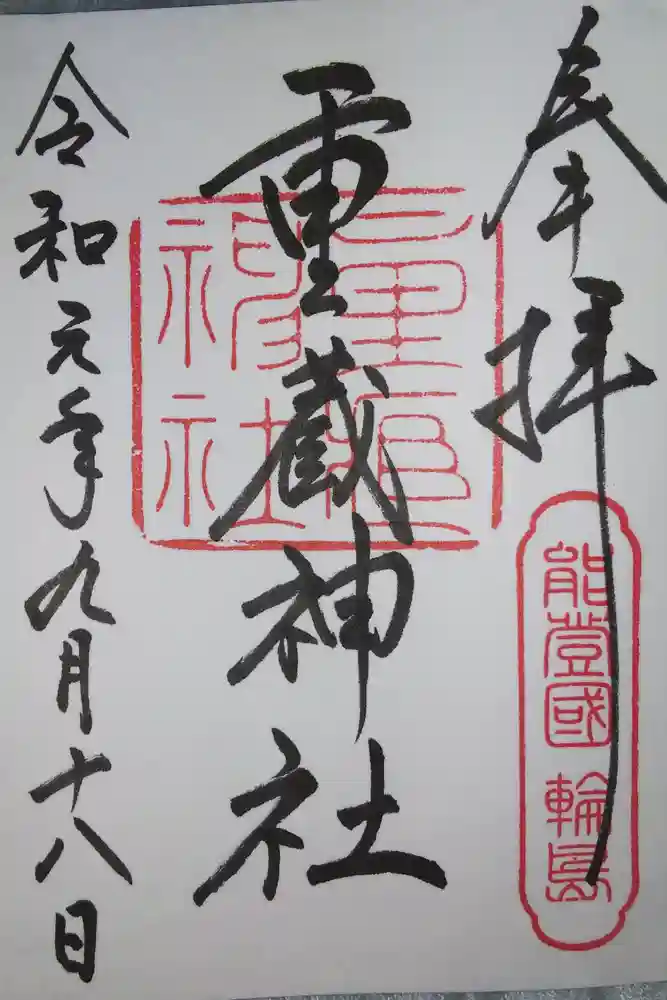 奉拝
能登國 輪島
重蔵神社
重蔵神社
令和元年九月十八日